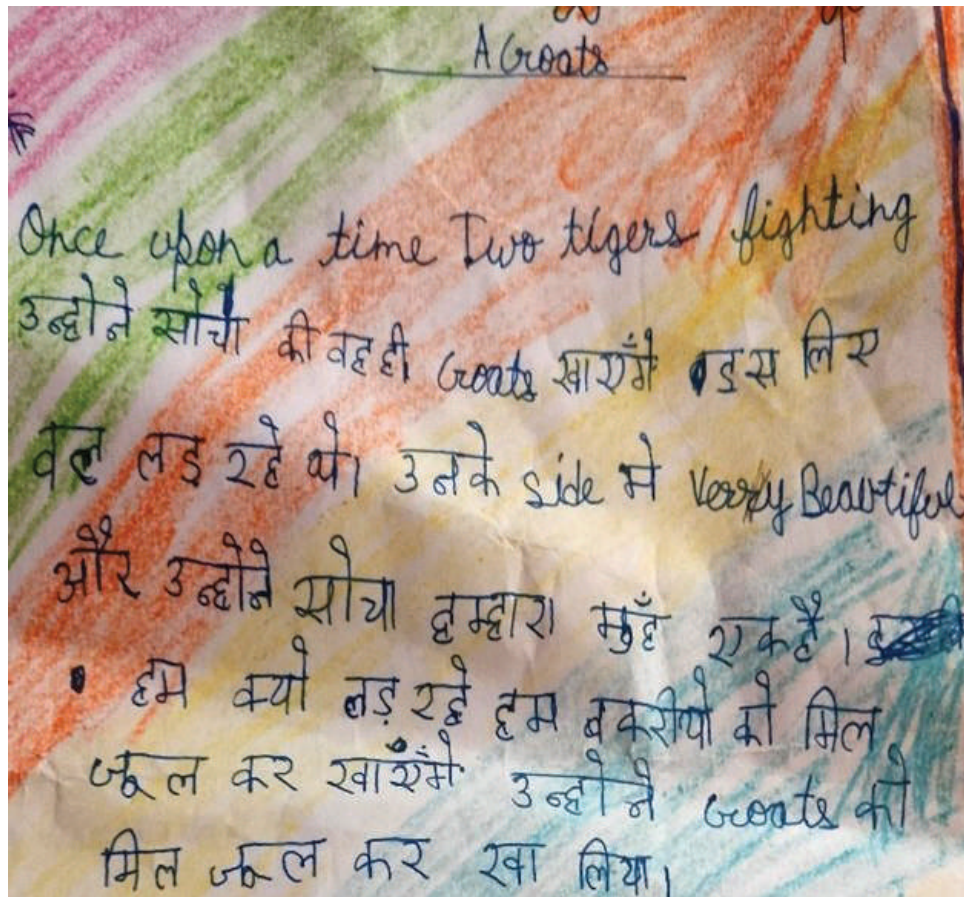 A Goats
Once upon a time Two tigers fighting
उन्होने सोचा की वह ही Goats खाएँगे इस लिए
वह लड़ रहे थे। उनके side मे Verry Beautiful
और उन्होने सोचा हम्हारा मुँह एक है।
हम क्यो लड़ रहे हम बकरीयो को मिल
जूल कर खाएँगे उन्होने Goats को
मिल जूल कर खा लिया।